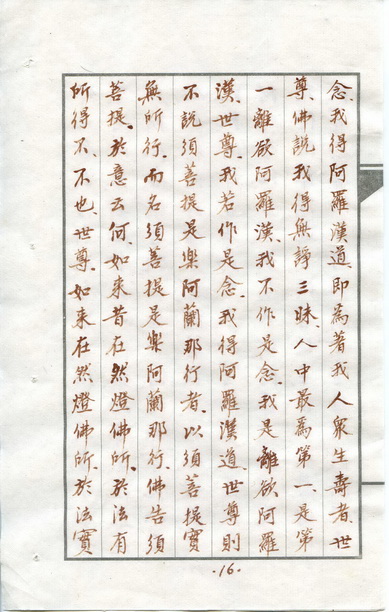 念、我得阿羅漢道、即為著我人衆生壽者、世
尊、佛說我得無諍三昧、人中最為第一、是第
一離欲阿羅漢、我不作是念、我是離欲阿羅
漢、世尊、我若作是念、我得阿羅漢道、世尊則
不說須菩提是樂阿蘭那行者、以須菩提實
無所行、而名須菩提是樂阿蘭那行、佛告須
菩提、於意云何、如来昔在然燈佛所、於法有
所得不、不也、世尊、如来在然燈佛所、於法實
·16·